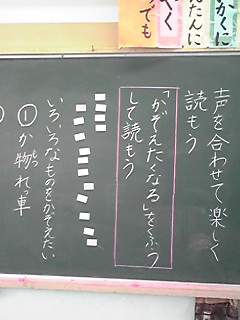 かくに
たんに
やく
つでも
声を合わせて楽しく
読もう
「かぞえたくなる」をくふう
して読もう
いろいろなものをかぞえたい
①か物れっ車
もつ